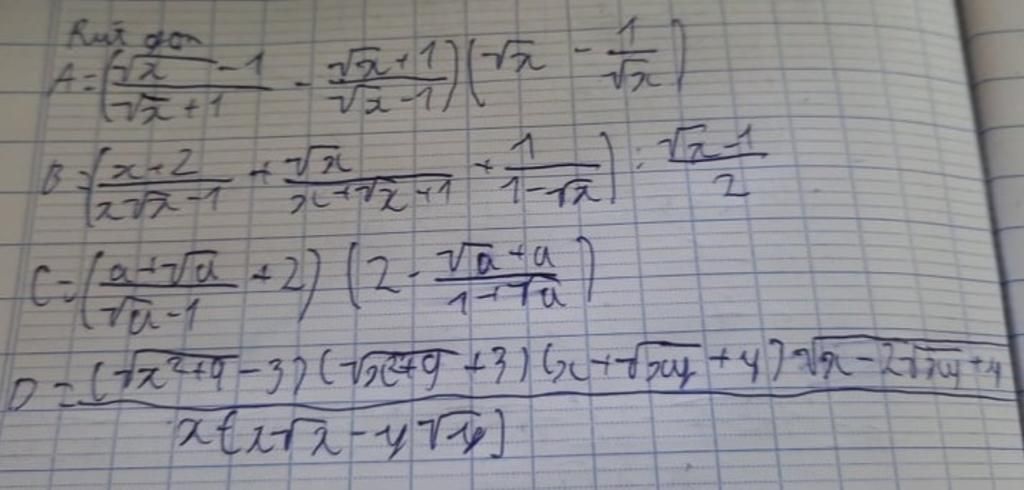 Rút gọn
A = (\frac{\sqrt{x} - 1}{\sqrt{x} + 1} - \frac{\sqrt{x} + 1}{\sqrt{x} - 1}) (\sqrt{x} - \frac{1}{\sqrt{x}})
B = (\frac{x + 2}{x\sqrt{x} - 1} + \frac{\sqrt{x}}{x + \sqrt{x} + 1} + \frac{1}{1 - \sqrt{x}}) : \frac{\sqrt{x} - 1}{2}
C = (\frac{a + \sqrt{a}}{\sqrt{a} - 1} + 2) (2 - \frac{\sqrt{a} + a}{1 + \sqrt{a}})
D = \frac{(\sqrt{x^2 + 9} - 3)(\sqrt{x^2 + 9} + 3)(x + \sqrt{xy} + y)\sqrt{x - 2\sqrt{xy} + y}}{x(x\sqrt{x} - y\sqrt{y})}